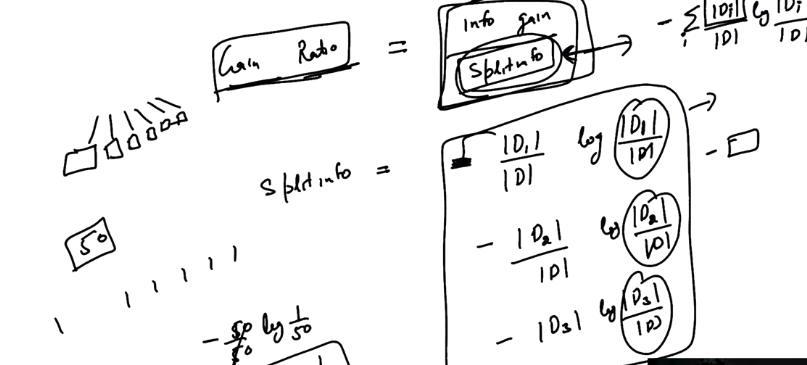 Gain Ratio = info gain / Splitinfo
- Σ_i |Di|/|D| log |Di|/|D|
Splitinfo = - |D1|/|D| log |D1|/|D|
- |D2|/|D| log |D2|/|D|
- |D3| log |D3|/|D|
50
- 50/50 log 1/50